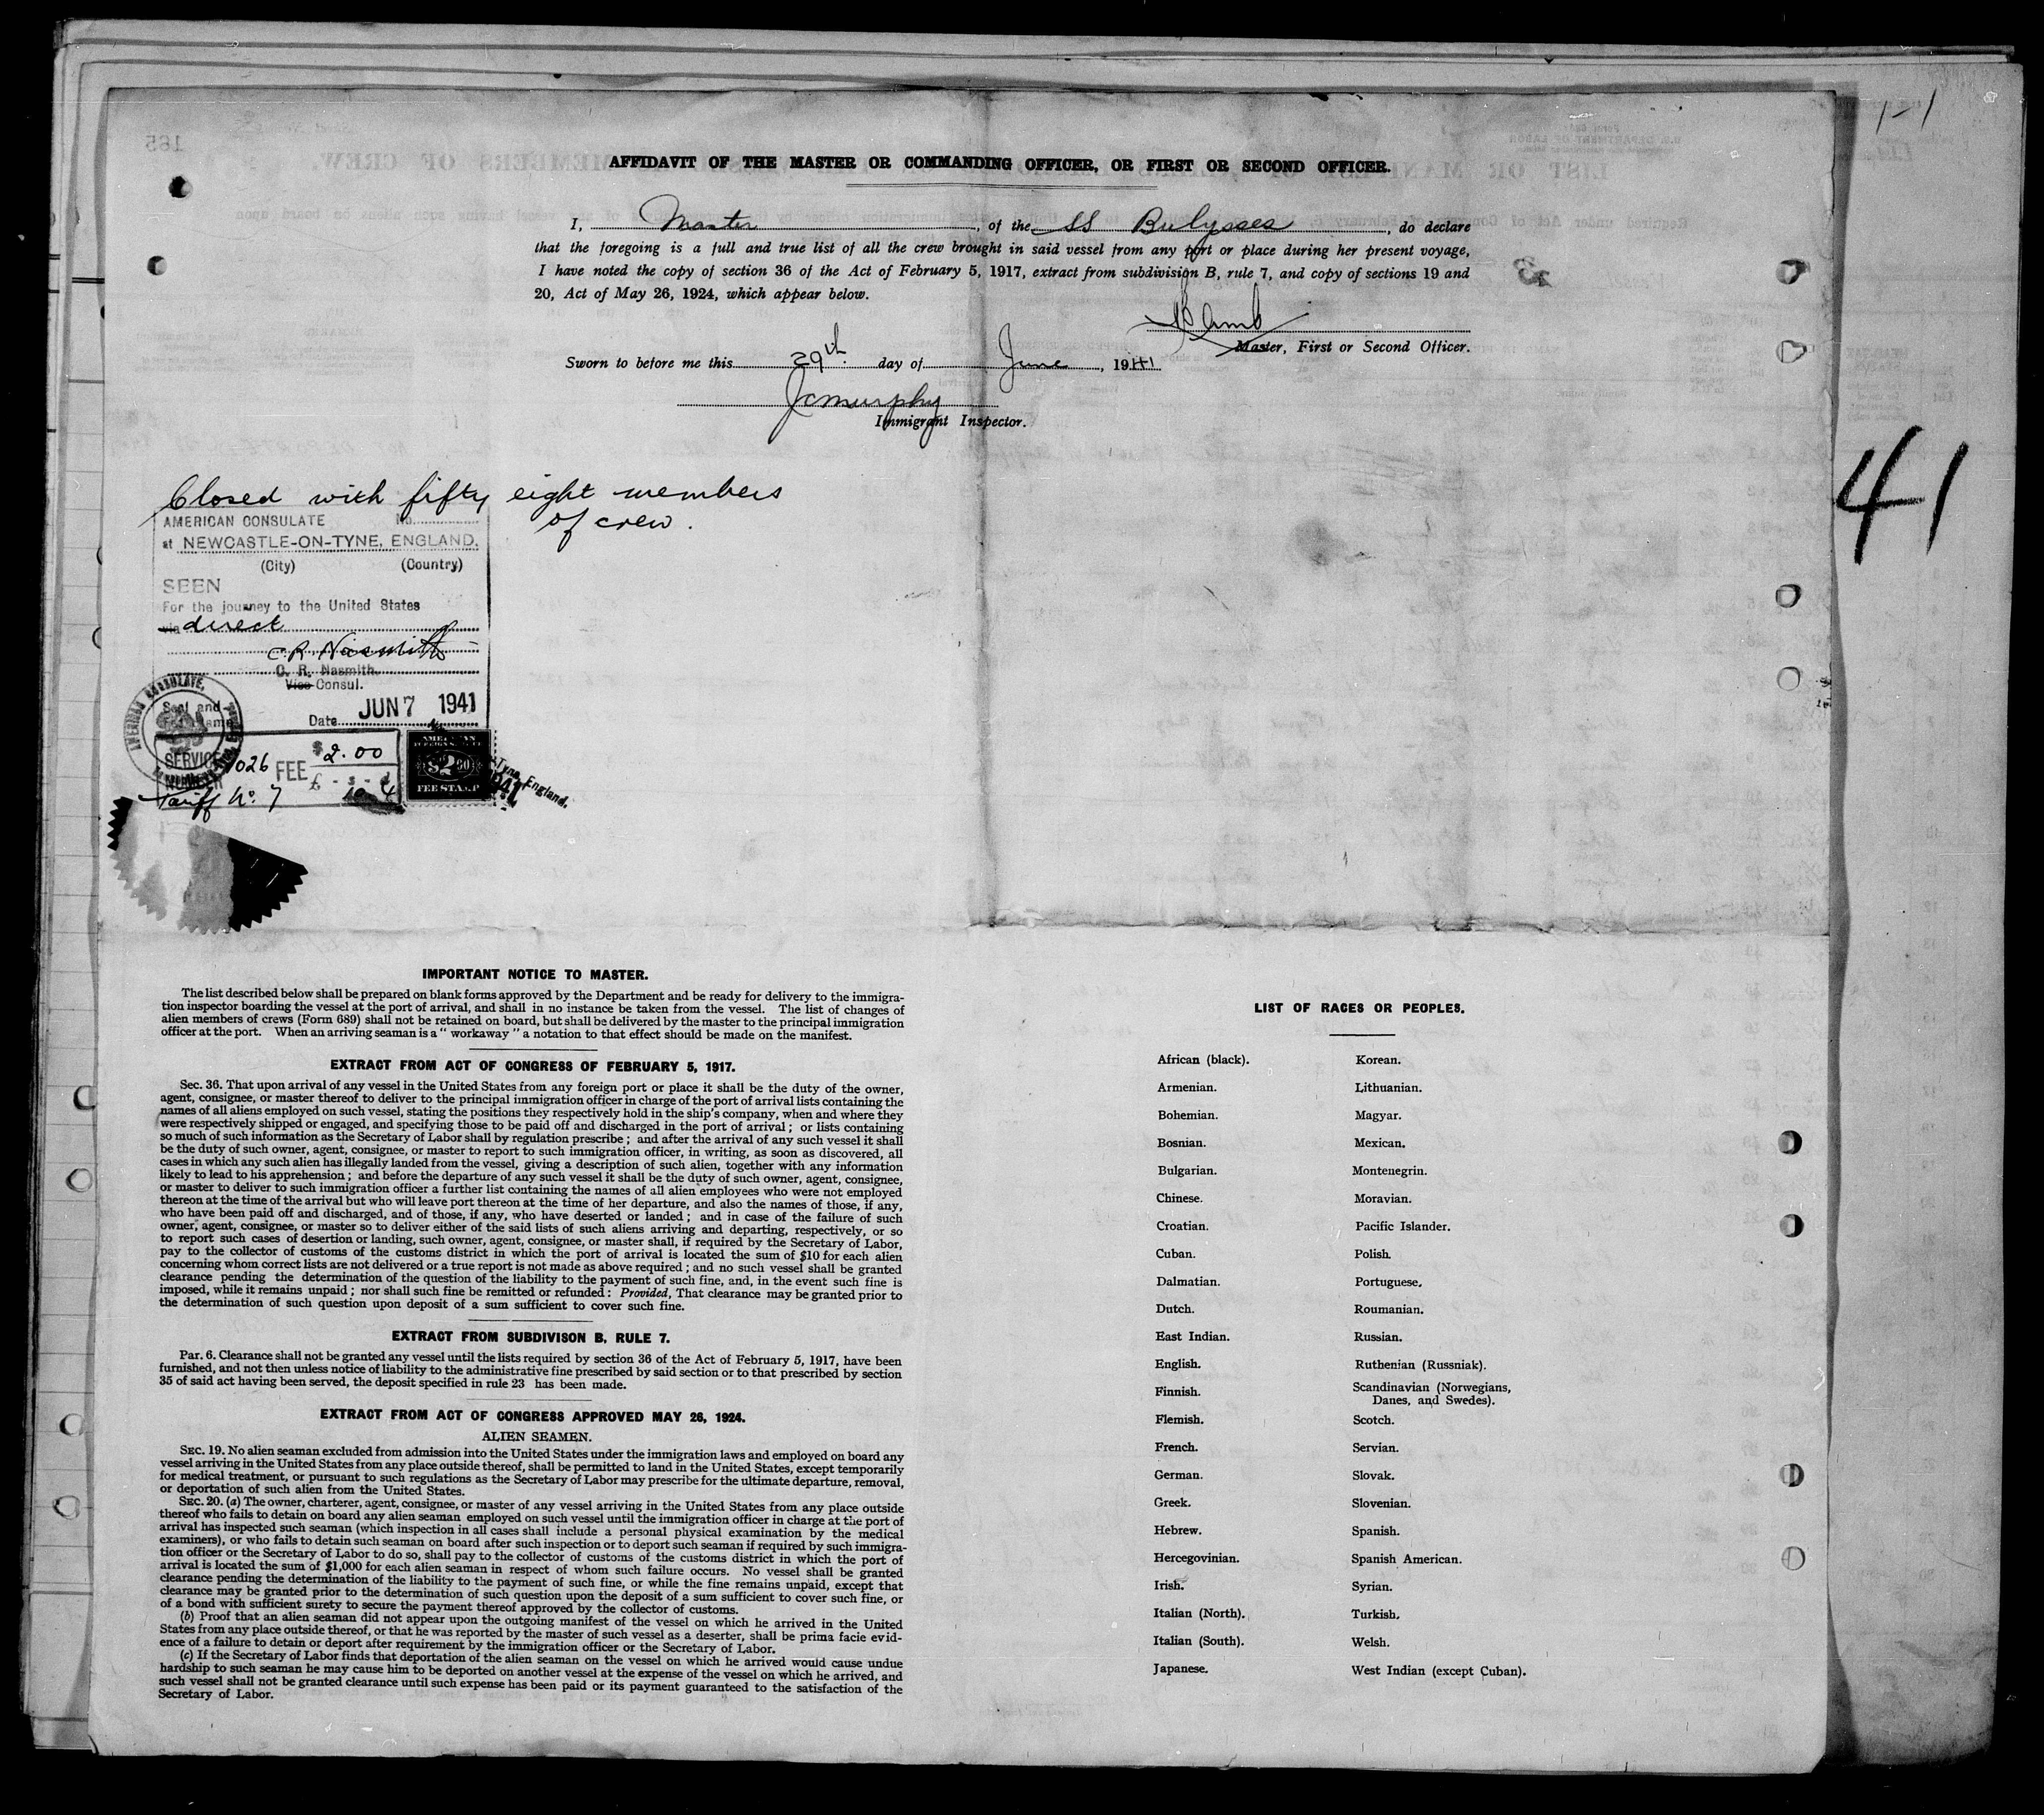 1-1
41
AFFIDAVIT OF THE MASTER OR COMMANDING OFFICER, OR FIRST OR SECOND OFFICER.
I, Master, of the SS Bulysses, do declare
that the foregoing is a full and true list of all the crew brought in said vessel from any port or place during her present voyage,
I have noted the copy of section 36 of the Act of February 5, 1917, extract from subdivision B, rule 7, and copy of sections 19 and
20, Act of May 26, 1924, which appear below.
Master, First or Second Officer.
Sworn to before me this 29th day of June, 1941
JCMurphy
Immigrant Inspector.
Closed with fifty eight members
of crew.
AMERICAN CONSULATE No.
at NEWCASTLE-ON-TYNE, ENGLAND.
(City) (Country)
SEEN
For the journey to the United States
via direct
C R Nasmith
C. R. Nasmith.
Vice Consul.
Date JUN 7 1941
SERVICE 1026 FEE $2.00
NUMBER £ - s - d
Tariff No. 7 10 4
FEE STAMP
Tyne, England.
IMPORTANT NOTICE TO MASTER.
The list described below shall be prepared on blank forms approved by the Department and be ready for delivery to the immigra-
tion inspector boarding the vessel at the port of arrival, and shall in no instance be taken from the vessel. The list of changes of
alien members of crews (Form 689) shall not be retained on board, but shall be delivered by the master to the principal immigration
officer at the port. When an arriving seaman is a " workaway " a notation to that effect should be made on the manifest.
EXTRACT FROM ACT OF CONGRESS OF FEBRUARY 5, 1917.
Sec. 36. That upon arrival of any vessel in the United States from any foreign port or place it shall be the duty of the owner,
agent, consignee, or master thereof to deliver to the principal immigration officer in charge of the port of arrival lists containing the
names of all aliens employed on such vessel, stating the positions they respectively hold in the ship's company, when and where they
were respectively shipped or engaged, and specifying those to be paid off and discharged in the port of arrival ; or lists containing
so much of such information as the Secretary of Labor shall by regulation prescribe ; and after the arrival of any such vessel it shall
be the duty of such owner, agent, consignee, or master to report to such immigration officer, in writing, as soon as discovered, all
cases in which any such alien has illegally landed from the vessel, giving a description of such alien, together with any information
likely to lead to his apprehension ; and before the departure of any such vessel it shall be the duty of such owner, agent, consignee,
or master to deliver to such immigration officer a further list containing the names of all alien employees who were not employed
thereon at the time of the arrival but who will leave port thereon at the time of her departure, and also the names of those, if any,
who have been paid off and discharged, and of those, if any, who have deserted or landed ; and in case of the failure of such
owner, agent, consignee, or master so to deliver either of the said lists of such aliens arriving and departing, respectively, or so
to report such cases of desertion or landing, such owner, agent, consignee, or master shall, if required by the Secretary of Labor,
pay to the collector of customs of the customs district in which the port of arrival is located the sum of $10 for each alien
concerning whom correct lists are not delivered or a true report is not made as above required ; and no such vessel shall be granted
clearance pending the determination of the question of the liability to the payment of such fine, and, in the event such fine is
imposed, while it remains unpaid ; nor shall such fine be remitted or refunded : Provided, That clearance may be granted prior to
the determination of such question upon deposit of a sum sufficient to cover such fine.
EXTRACT FROM SUBDIVISON B, RULE 7.
Par. 6. Clearance shall not be granted any vessel until the lists required by section 36 of the Act of February 5, 1917, have been
furnished, and not then unless notice of liability to the administrative fine prescribed by said section or to that prescribed by section
35 of said act having been served, the deposit specified in rule 23 has been made.
EXTRACT FROM ACT OF CONGRESS APPROVED MAY 26, 1924.
ALIEN SEAMEN.
SEC. 19. No alien seaman excluded from admission into the United States under the immigration laws and employed on board any
vessel arriving in the United States from any place outside thereof, shall be permitted to land in the United States, except temporarily
for medical treatment, or pursuant to such regulations as the Secretary of Labor may prescribe for the ultimate departure, removal,
or deportation of such alien from the United States.
SEC. 20. (a) The owner, charterer, agent, consignee, or master of any vessel arriving in the United States from any place outside
thereof who fails to detain on board any alien seaman employed on such vessel until the immigration officer in charge at the port of
arrival has inspected such seaman (which inspection in all cases shall include a personal physical examination by the medical
examiners), or who fails to detain such seaman on board after such inspection or to deport such seaman if required by such immigra-
tion officer or the Secretary of Labor to do so, shall pay to the collector of customs of the customs district in which the port of
arrival is located the sum of $1,000 for each alien seaman in respect of whom such failure occurs. No vessel shall be granted
clearance pending the determination of the liability to the payment of such fine, or while the fine remains unpaid, except that
clearance may be granted prior to the determination of such question upon the deposit of a sum sufficient to cover such fine, or
of a bond with sufficient surety to secure the payment thereof approved by the collector of customs.
(b) Proof that an alien seaman did not appear upon the outgoing manifest of the vessel on which he arrived in the United
States from any place outside thereof, or that he was reported by the master of such vessel as a deserter, shall be prima facie evid-
ence of a failure to detain or deport after requirement by the immigration officer or the Secretary of Labor.
(c) If the Secretary of Labor finds that deportation of the alien seaman on the vessel on which he arrived would cause undue
hardship to such seaman he may cause him to be deported on another vessel at the expense of the vessel on which he arrived, and
such vessel shall not be granted clearance until such expense has been paid or its payment guaranteed to the satisfaction of the
Secretary of Labor.
LIST OF RACES OR PEOPLES.
African (black). Korean.
Armenian. Lithuanian.
Bohemian. Magyar.
Bosnian. Mexican.
Bulgarian. Montenegrin.
Chinese. Moravian.
Croatian. Pacific Islander.
Cuban. Polish.
Dalmatian. Portuguese.
Dutch. Roumanian.
East Indian. Russian.
English. Ruthenian (Russniak).
Finnish. Scandinavian (Norwegians,
Danes, and Swedes).
Flemish. Scotch.
French. Servian.
German. Slovak.
Greek. Slovenian.
Hebrew. Spanish.
Hercegovinian. Spanish American.
Irish. Syrian.
Italian (North). Turkish.
Italian (South). Welsh.
Japanese. West Indian (except Cuban).